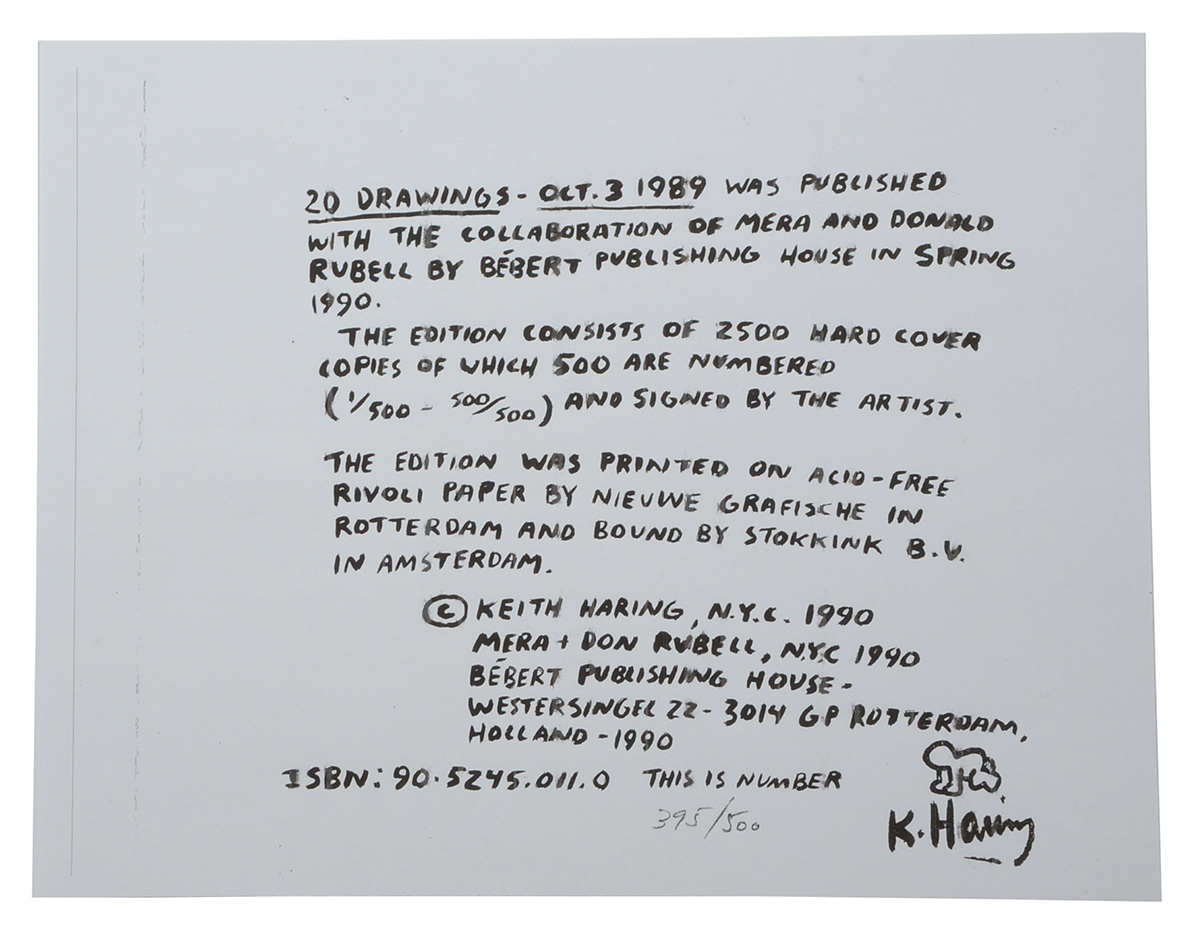 20 DRAWINGS - OCT. 3 1989 WAS PUBLISHED
WITH THE COLLABORATION OF MERA AND DONALD
RUBELL BY BÉBERT PUBLISHING HOUSE IN SPRING
1990.
THE EDITION CONSISTS OF 2500 HARD COVER
COPIES OF WHICH 500 ARE NUMBERED
(1/500 - 500/500) AND SIGNED BY THE ARTIST.
THE EDITION WAS PRINTED ON ACID-FREE
RIVOLI PAPER BY NIEUWE GRAFISCHE IN
ROTTERDAM AND BOUND BY STOKKINK B.V.
IN AMSTERDAM.
© KEITH HARING, N.Y.C. 1990
MERA + DON RUBELL, NYC 1990
BÉBERT PUBLISHING HOUSE -
WESTERSINGEL 22 - 3014 GP ROTTERDAM,
HOLLAND - 1990
ISBN: 90.5245.011.0 THIS IS NUMBER
395/500
K. Haring